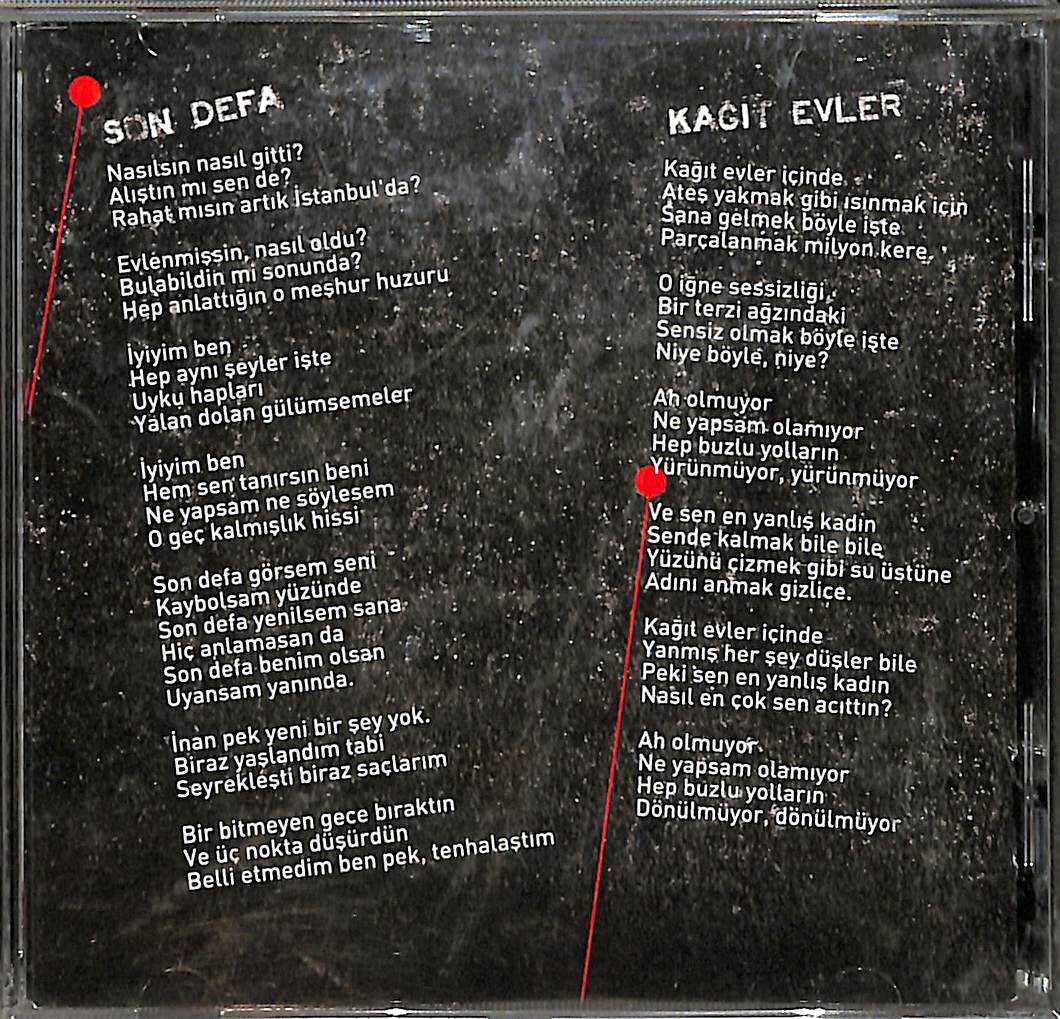 SON DEFA
Nasılsın nasıl gitti?
Alıştın mı sen de?
Rahat mısın artık İstanbul'da?
Evlenmişsin, nasıl oldu?
Bulabildin mi sonunda?
Hep anlattığın o meşhur huzuru
İyiyim ben
Hep aynı şeyler işte
Uyku hapları
Yalan dolan gülümsemeler
İyiyim ben
Hem sen tanırsın beni
Ne yapsam ne söylesem
O geç kalmışlık hissi
Son defa görsem seni
Kaybolsam yüzünde
Son defa yenilsem sana
Hiç anlamasan da
Son defa benim olsan
Uyansam yanında.
İnan pek yeni bir şey yok.
Biraz yaşlandım tabi
Seyrekleşti biraz saçlarım
Bir bitmeyen gece bıraktın
Ve üç nokta düşürdün
Belli etmedim ben pek, tenhalaştım
KAĞIT EVLER
Kağıt evler içinde
Ateş yakmak gibi ısınmak için
Sana gelmek böyle işte
Parçalanmak milyon kere.
O iğne sessizliği,
Bir terzi ağzındaki
Sensiz olmak böyle işte
Niye böyle, niye?
Ah olmuyor
Ne yapsam olamıyor
Hep buzlu yolların
Yürünmüyor, yürünmüyor
Ve sen en yanlış kadın
Sende kalmak bile bile
Yüzünü çizmek gibi su üstüne
Adını anmak gizlice.
Kağıt evler içinde
Yanmış her şey düşler bile
Peki sen en yanlış kadın
Nasıl en çok sen acıttın?
Ah olmuyor
Ne yapsam olamıyor
Hep buzlu yolların
Dönülmüyor, dönülmüyor